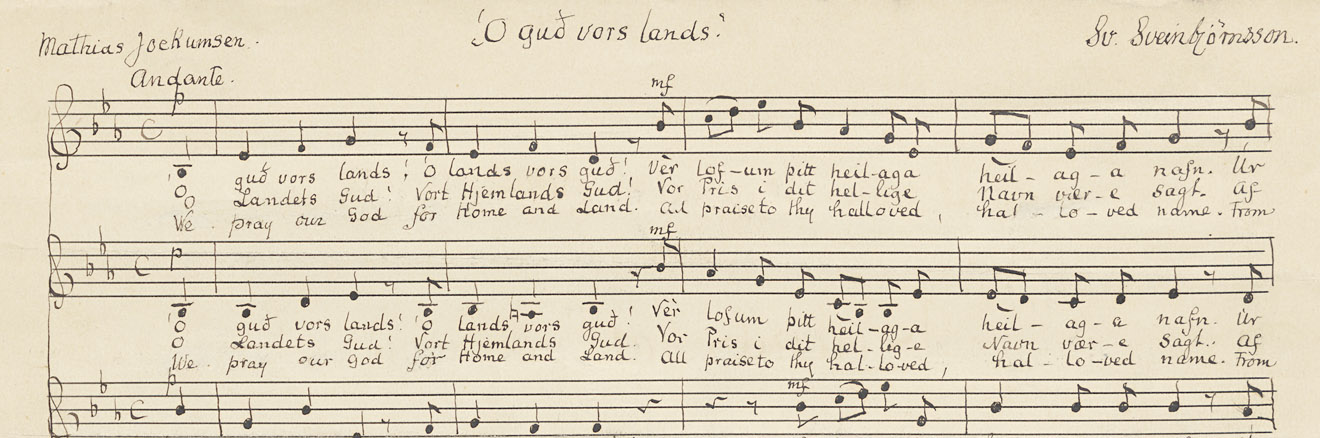 'O guð vors lands'.
Mathias Jockumsen.
Sv. Sveinbjörnsson.
Andante.
p
mf
Ó guð vors lands! Ó lands vors guð! Vèr lof-um þitt heil-aga heil-ag-a nafn. Úr
O Landets Gud! Vort Hjemlands Gud! Vor Pris i dit hel-lige Navn vær-e sagt. Af
We pray our God for Home and Land. All praise to thy halloved, hal-lo-ved name. From
p
mf
Ó guð vors lands! Ó lands vors guð! Vèr lofum þitt heil-ag-a heil-ag-a nafn. Úr
O Landets Gud! Vort Hjemlands Gud. Vor Pris i dit hel-lig-e Navn vær-e sagt. Af
We pray our God for Home and Land. All praise to thy hal-lo-ved, hal-lo-ved name. From
p
mf